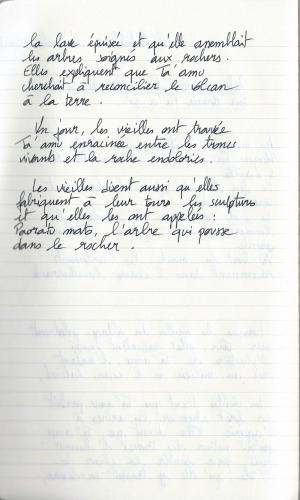 la lave épuisée et qu'elle assemblait
les arbres soignés aux rochers.
Elles expliquent que Ta'amu
cherchait à réconcilier le volcan
à la terre.
Un jour, les vieilles ont trouvée
Ta'amu enracinée entre les troncs
vivants et la roche endolorie.
Les vieilles disent aussi qu'elles
fabriquent à leur tours les sculptures
et qu'elles les ont appelées :
mato, l'arbre qui pousse
dans le rocher.